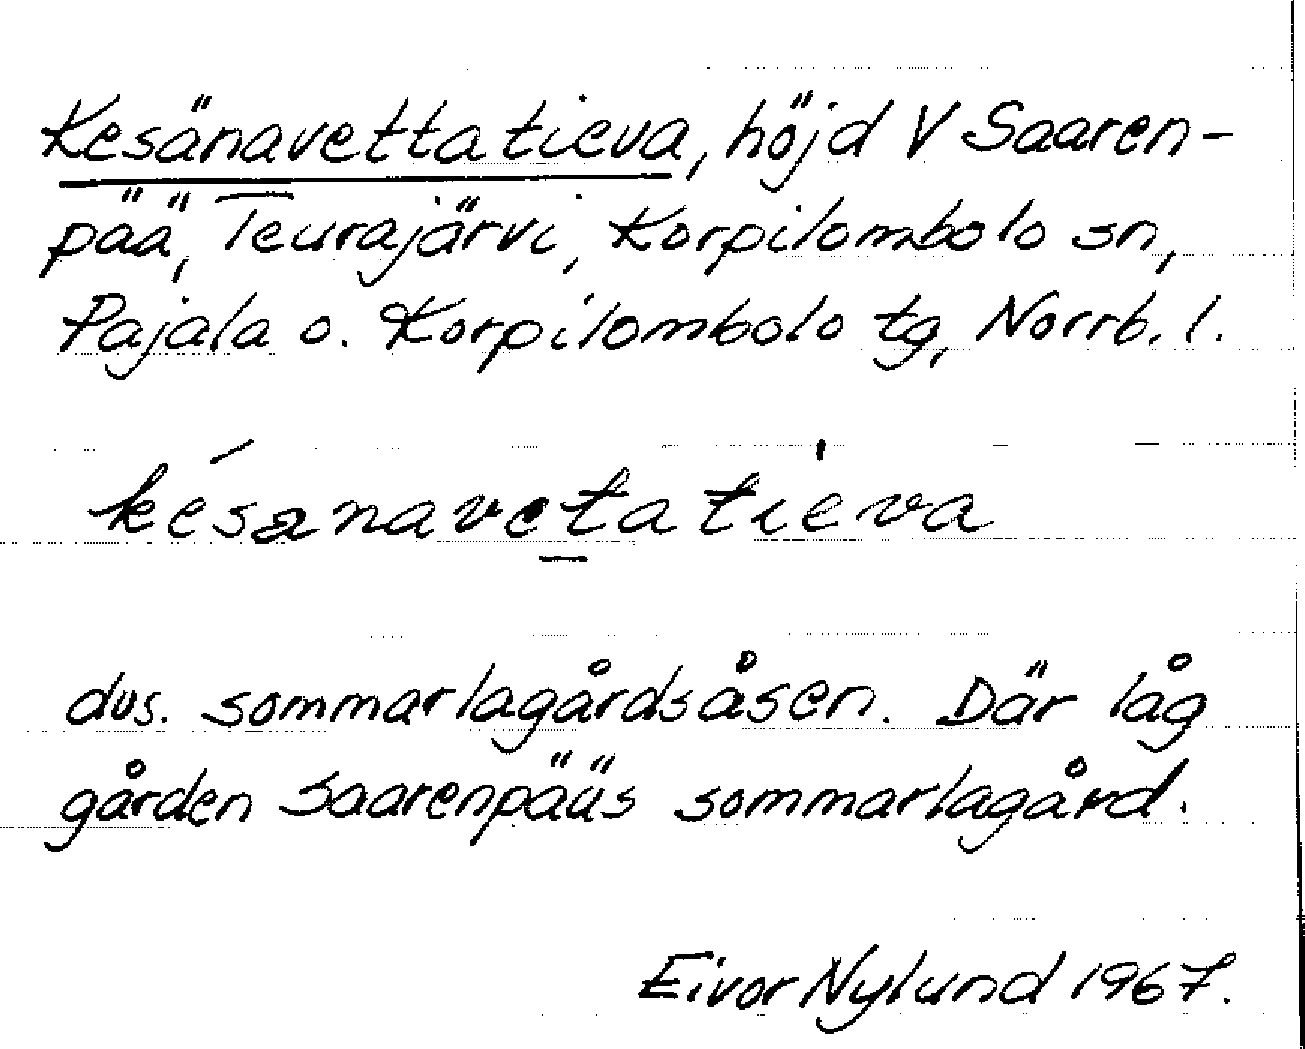 Kesänavettatieva, höjd V Saaren-
pää, Teurajärvi, Korpilombolo sn,
Pajala o. Korpilombolo tg, Norrb. l.
késanavet̲a tìeva
dvs. sommarlagårdsåsen. Där låg
gården Saarenpääs sommarlagård.
Eivor Nylund 1967.